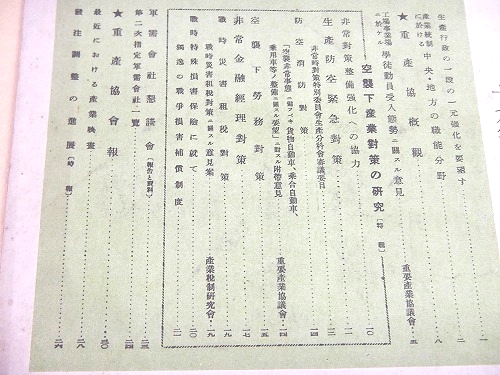 生產行政の一段の一元强化を要望す……一
產業統制に於ける中央・地方の職能分野……二
★重產協會概觀……八
工場事業場ニ於ケル學徒動員受入態勢ニ關スル意見……重要產業協議會…五
空襲下產業對策の硏究〔特輯〕
非常對策整備强化への協力……一〇
生產防空緊急對策……一一
非常時對策特別委員會生產分科會審議要目……一二
防空消防對策……一三
「空襲非常事態ニ備フベキ貨物自動車、乘合自動車、乘用車等ノ整備ニ關スル要望」ニ對スル附帶意見……重要產業協議會…一四
空襲下勞務對策……一五
非常金融經理對策……一七
戰時災害租稅對策……一九
戰時災害租稅對策ニ關スル意見案……產業稅制硏究會…一九
戰時特殊損害保險に就て……二〇
獨逸の戰爭損害補償制度……二一
軍需會社懇談會〔報告と資料〕……二三
第二次指定軍需會社一覽……二四
★重產協會報……三〇
最近における產業映畫……二八
發注調整の進展〔時報〕……二六